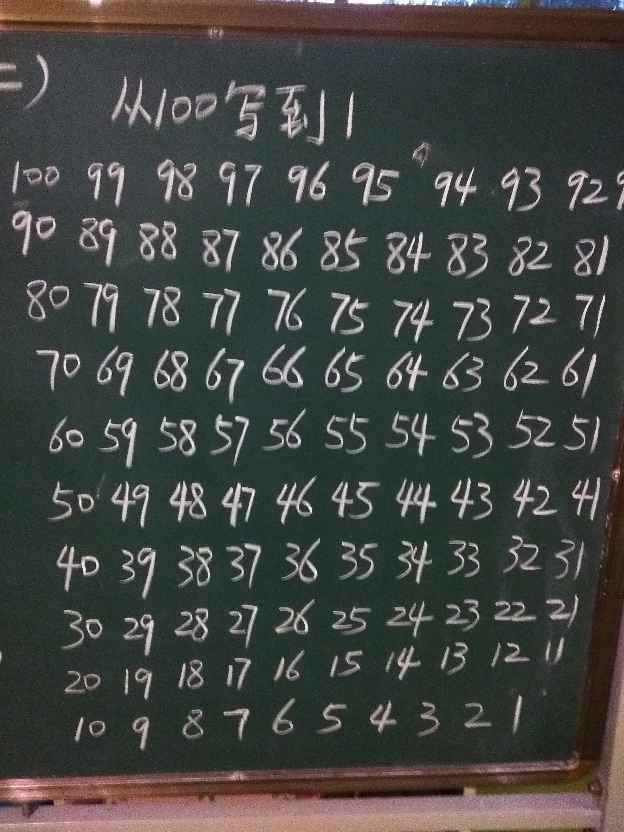 二) 从100写到1
100 99 98 97 96 95 94 93 92 9
90 89 88 87 86 85 84 83 82 81
80 79 78 77 76 75 74 73 72 71
70 69 68 67 66 65 64 63 62 61
60 59 58 57 56 55 54 53 52 51
50 49 48 47 46 45 44 43 42 41
40 39 38 37 36 35 34 33 32 31
30 29 28 27 26 25 24 23 22 21
20 19 18 17 16 15 14 13 12 11
10 9 8 7 6 5 4 3 2 1